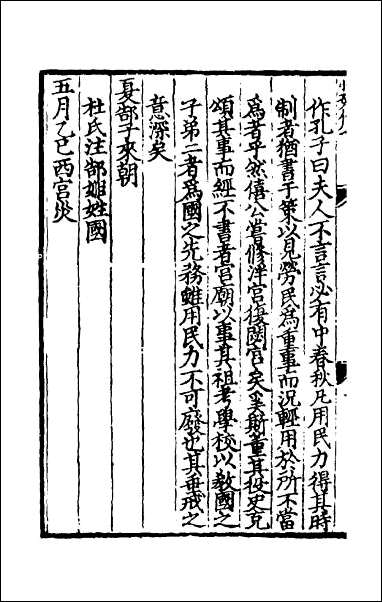 作孔子曰夫人不言言必有中春秋凡用民力得其時
制者猶書于策以見勞民為重事而況輕用於所不當
為者乎然僖公嘗修泮宮復閟宮矣奚斯董其役史克
頌其事而經不書者宮廟以事其祖考學校以教國之
子弟二者為國之先務雖用民力不可廢也其垂戒之
意深矣
夏郜子來朝
杜氏注郜姬姓國
五月乙巳西宮災